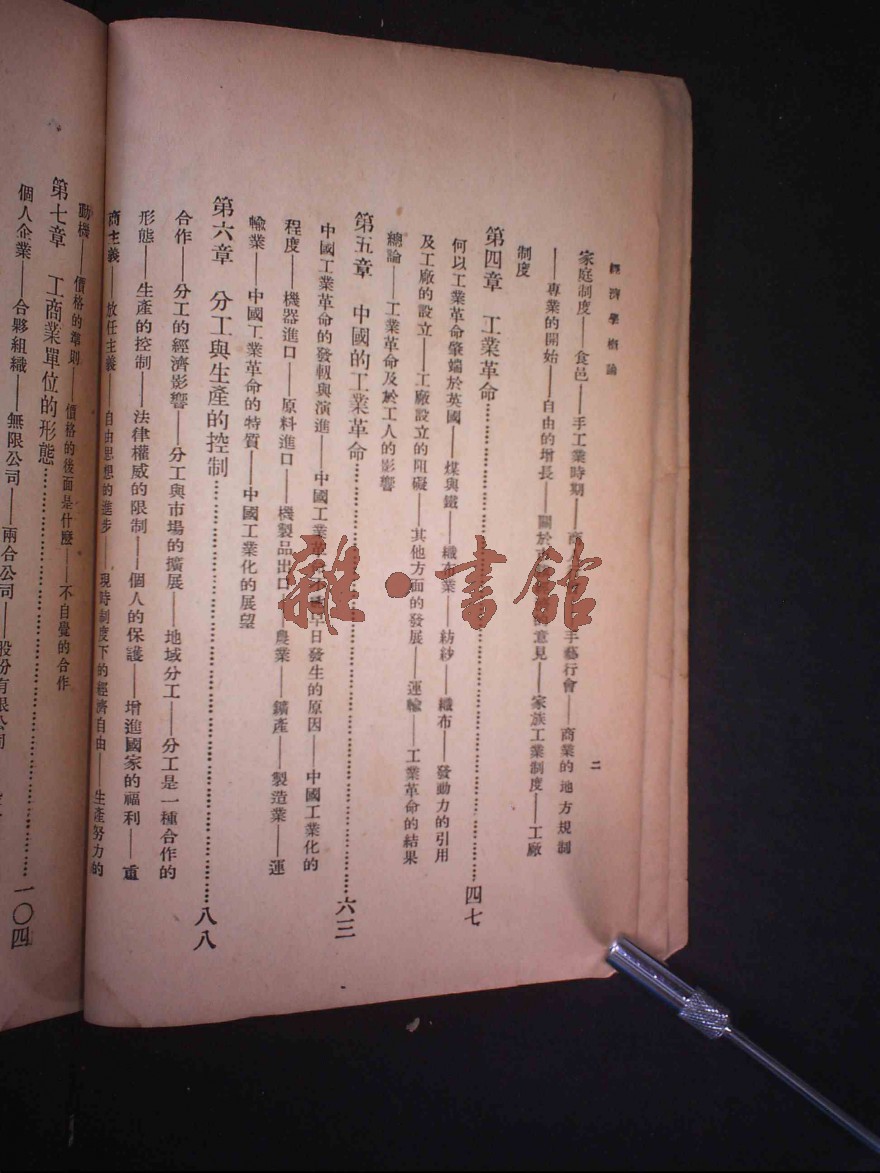 經濟學概論
二
家庭制度——食邑——手工業時期——商 手藝行會——商業的地方規制
——專業的開始——自由的增長——關於 意見——家族工業制度——工廠
制度
第四章 工業革命……四七
何以工業革命肇端於英國——煤與鐵——織布業——紡紗——織布——發動力的引用
及工廠的設立——工廠設立的阻礙——其他方面的發展——運輸——工業革命的結果
總論——工業革命及於工人的影響
第五章 中國的工業革命……六三
中國工業革命的發軔與演進——中國工業 早日發生的原因——中國工業化的
程度——機器進口——原料進口——機製品出口——農業——鑛產——製造業——運
輸業——中國工業革命的特質——中國工業化的展望
第六章 分工與生產的控制……八八
合作——分工的經濟影響——分工與市場的擴展——地域分工——分工是一種合作的
形態——生產的控制——法律權威的限制——個人的保護——增進國家的福利——重
商主義——放任主義——自由思想的進步——現時制度下的經濟自由——生產努力的
動機——價格的準則——價格的後面是什麼——不自覺的合作
第七章 工商業單位的形態……一〇四
個人企業——合夥組織——無限公司——兩合公司——股份有限公司
雜·書館